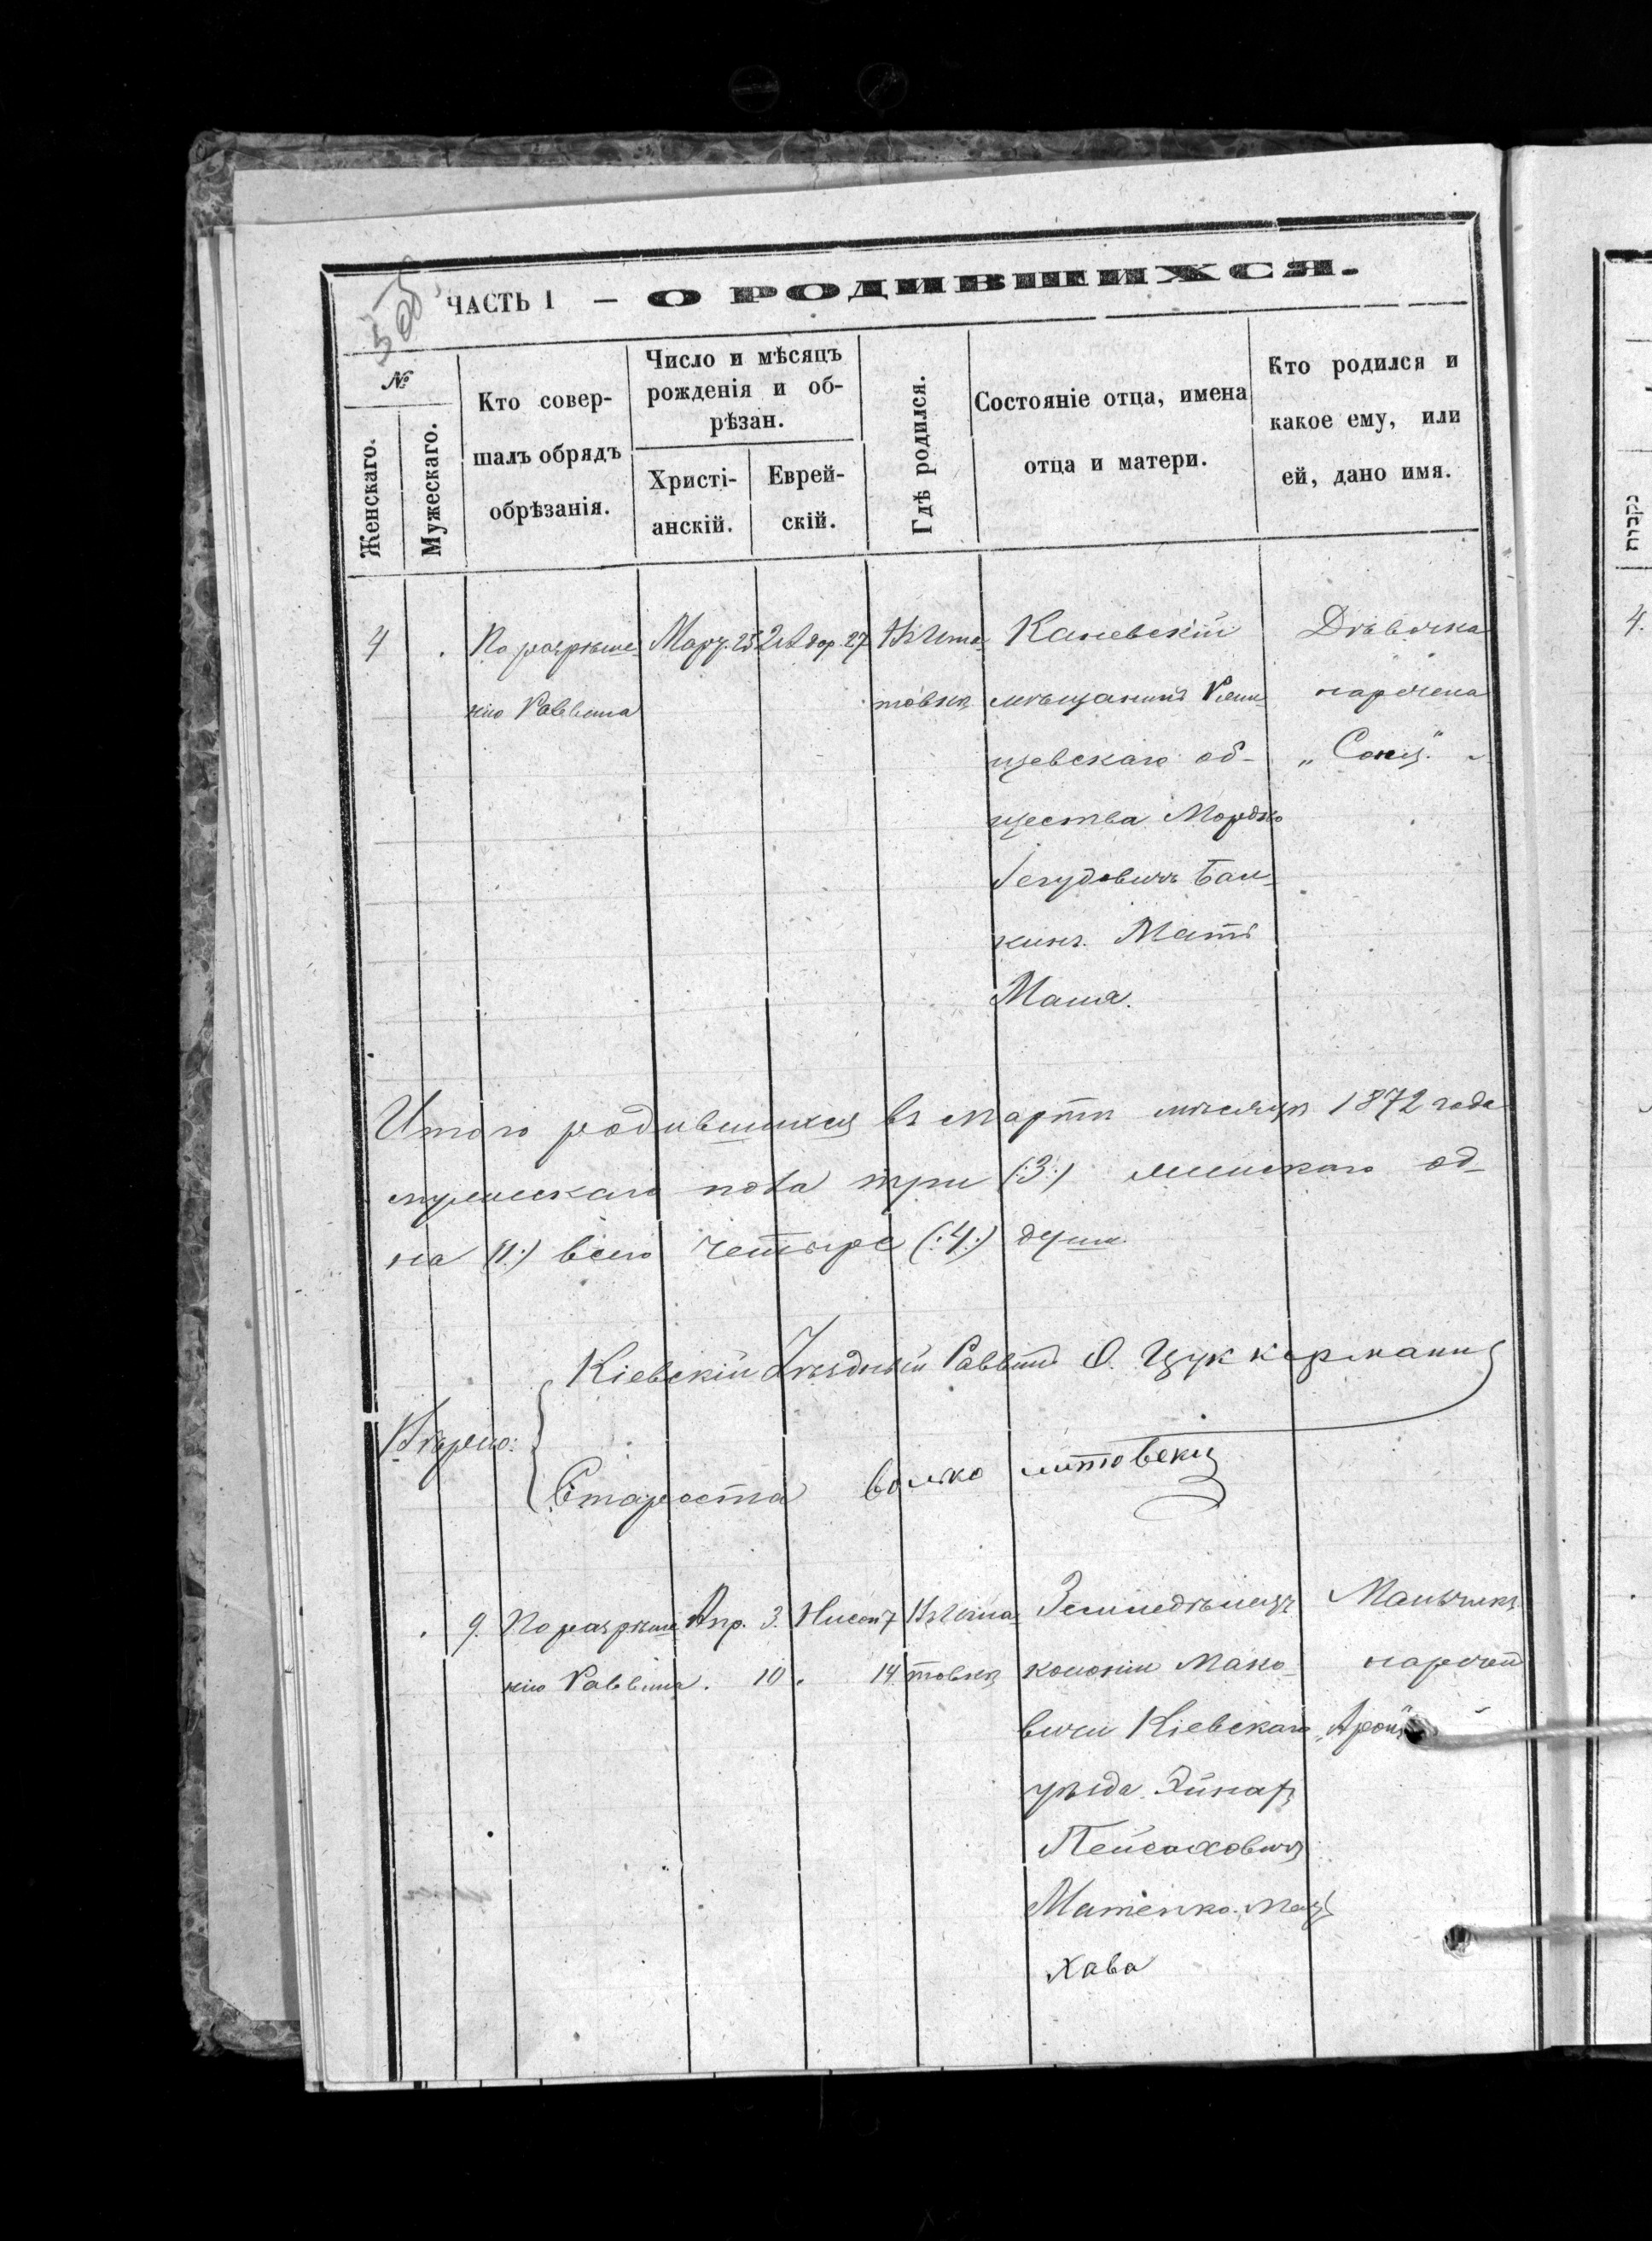 5 об.
ЧАСТЬ I – О РОДИВШИХСЯ.
№
Женскаго.
Мужескаго.
Кто совер-
шалъ обрядъ
обрѣзанія.
Число и мѣсяцъ
рожденія и об-
рѣзан.
Христі-
анскій.
Еврей-
скій.
Гдѣ родился.
Состояніе отца, имена
отца и матери.
Кто родился и
какое ему, или
ей, дано имя.
4
По разрѣше-
нію Раввина
Мар. 25
2 Адар. 27
Въ Игна-
товкѣ
Каневскій
мѣщанинъ Ржи-
щевскаго об-
щества Мордко
Іегудовичъ
Мать
Маша.
Дѣвочка
наречена
„Соня"
Итого родившихся въ мартѣ мѣсяцѣ 1872 года
мужескаго пола три (:3:) женскаго од-
на (1:) всего четыре (:4:) души.
Кіевскій Уѣздный Раввинъ О. Цуккерманъ
Вѣрно:
Староста Волько Литовскій
9.
По разрѣше-
нію Раввина.
Апр. 3.
10.
Нисон 7
14
Въ Игна-
товкѣ
Земледѣлецъ
колоніи Мако-
вичи Кіевскаго
уѣзда
Пейсаховичъ
Матенко. Мать
Хава
Мальчикъ
нареченъ
„Аронъ"
נקבות
4.